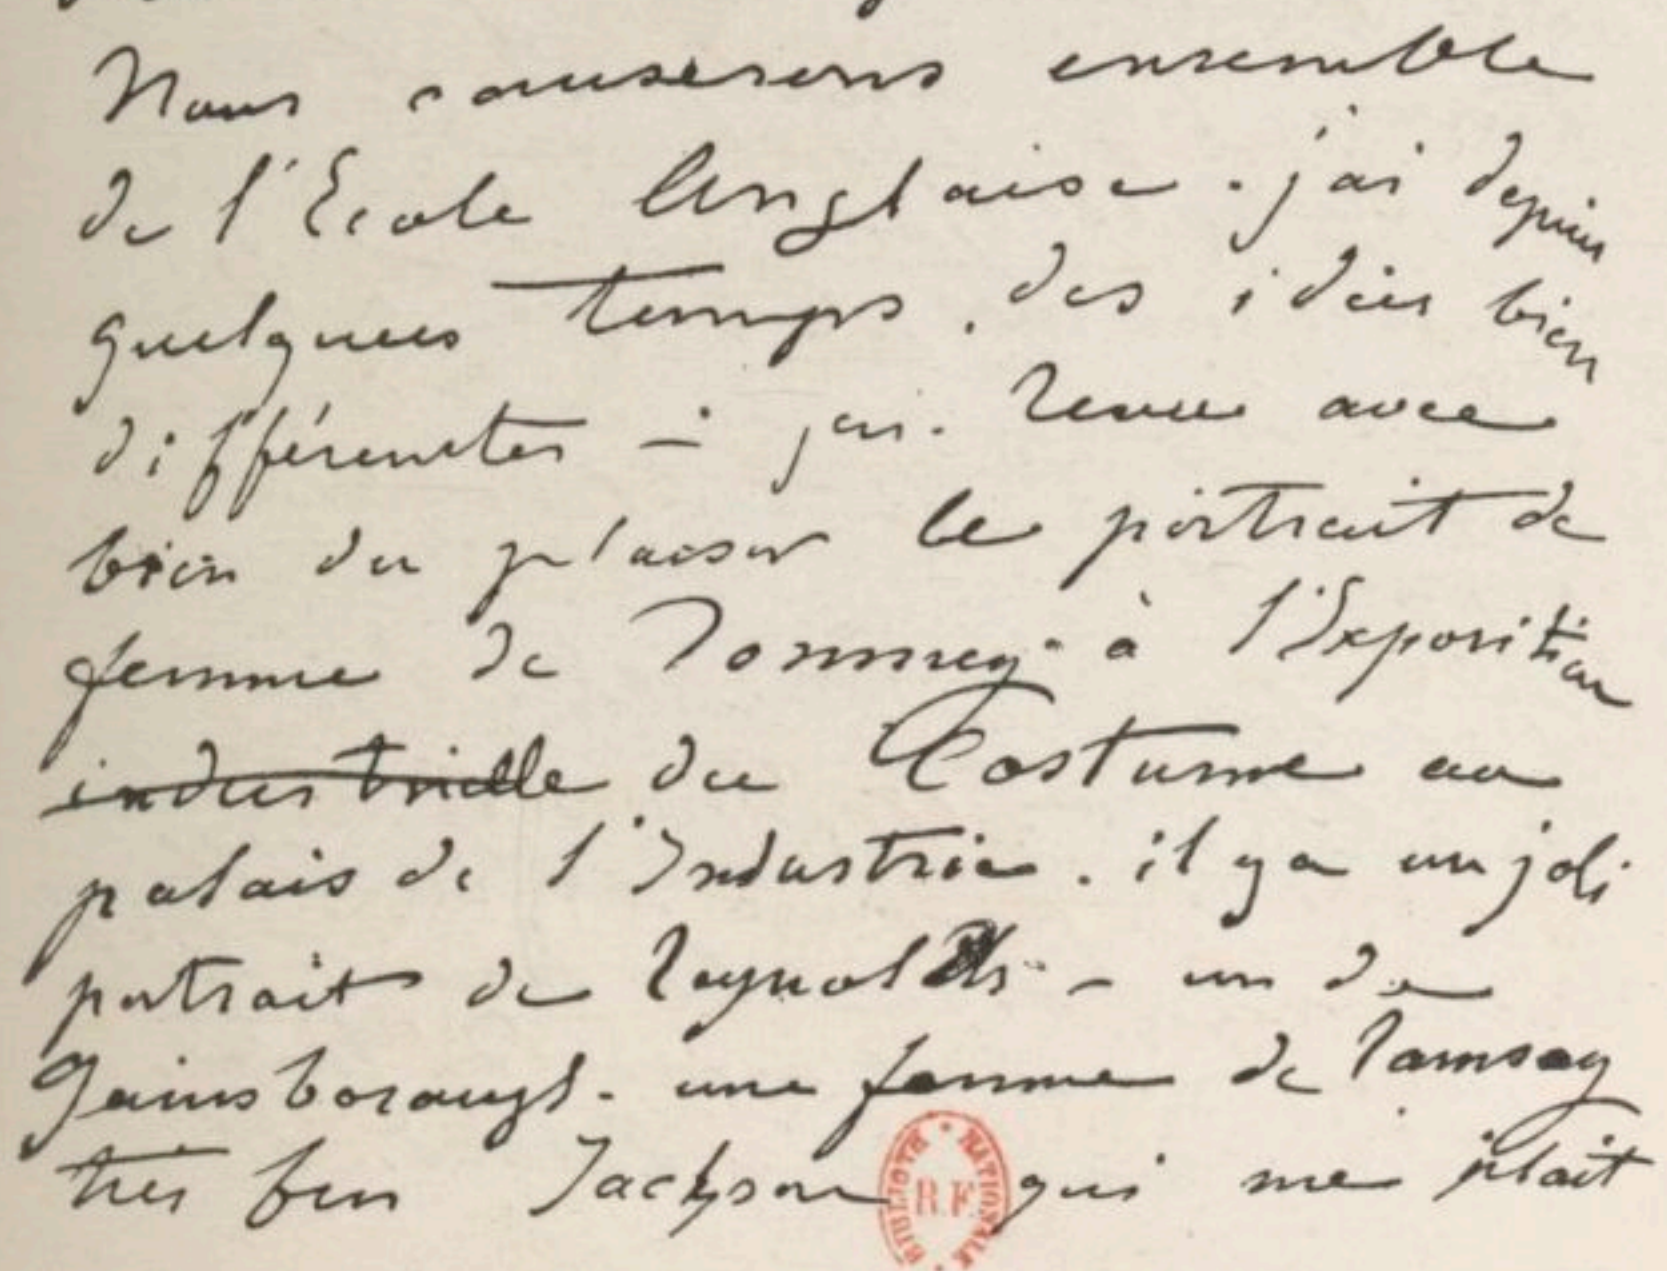 Nous causerons ensemble
de l'Ecole Anglaise. j'ai depuis
quelques temps, des idées bien
différentes - j'ai revu avec
bien du plaisir le portrait de
femme de Romney à l'Exposition
industrielle du Costume au
palais de l'Industrie. il y a un joli
portrait de Reynolds - un de
Gainsborough. une femme de Ramsay
très fin Jackson qui me plait
BIBLIOTH NATIONALE
R.F.